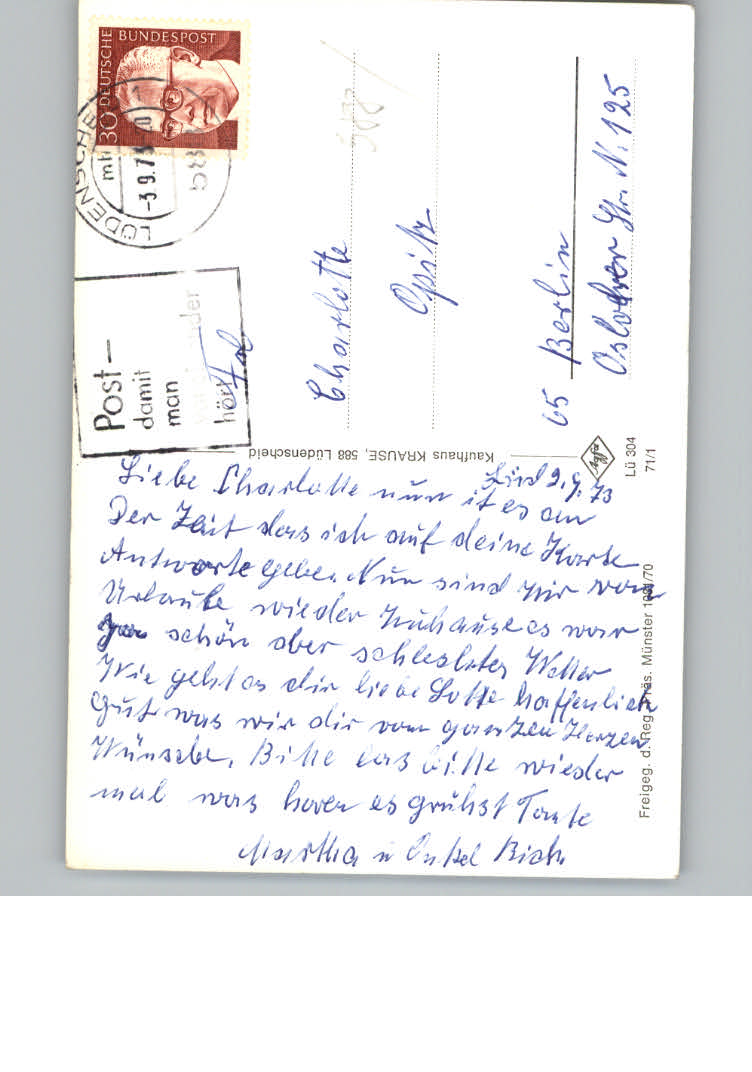 Lüd 2.9.73
Liebe Charlotte nun it es an
Der Zeit das ich auf deine Karte
Antworte geben. Nun sind wir vom
Urlaube wieder zuhause es war
schön aber schleshtes Wetter
Wie geht es dir liebe Lotte hoffenlich
Gut was wir dir vom ganzen Herzen
Wünsche. Bitte las bitte wieder
mal was horen es grühst Tante
Martha u Onkel
DEUTSCHE BUNDESPOST
30
LÜDENSCHE
-3.9.73
588
Post-
damit
man
hört
Charlotte
Opitz
65 Berlin
Osloer Str. N. 125
Kaufhaus KRAUSE, 588 Lüdenscheid
Agfa
Lü 304
71/1
Freigeg. d. Reg. Präs. Münster